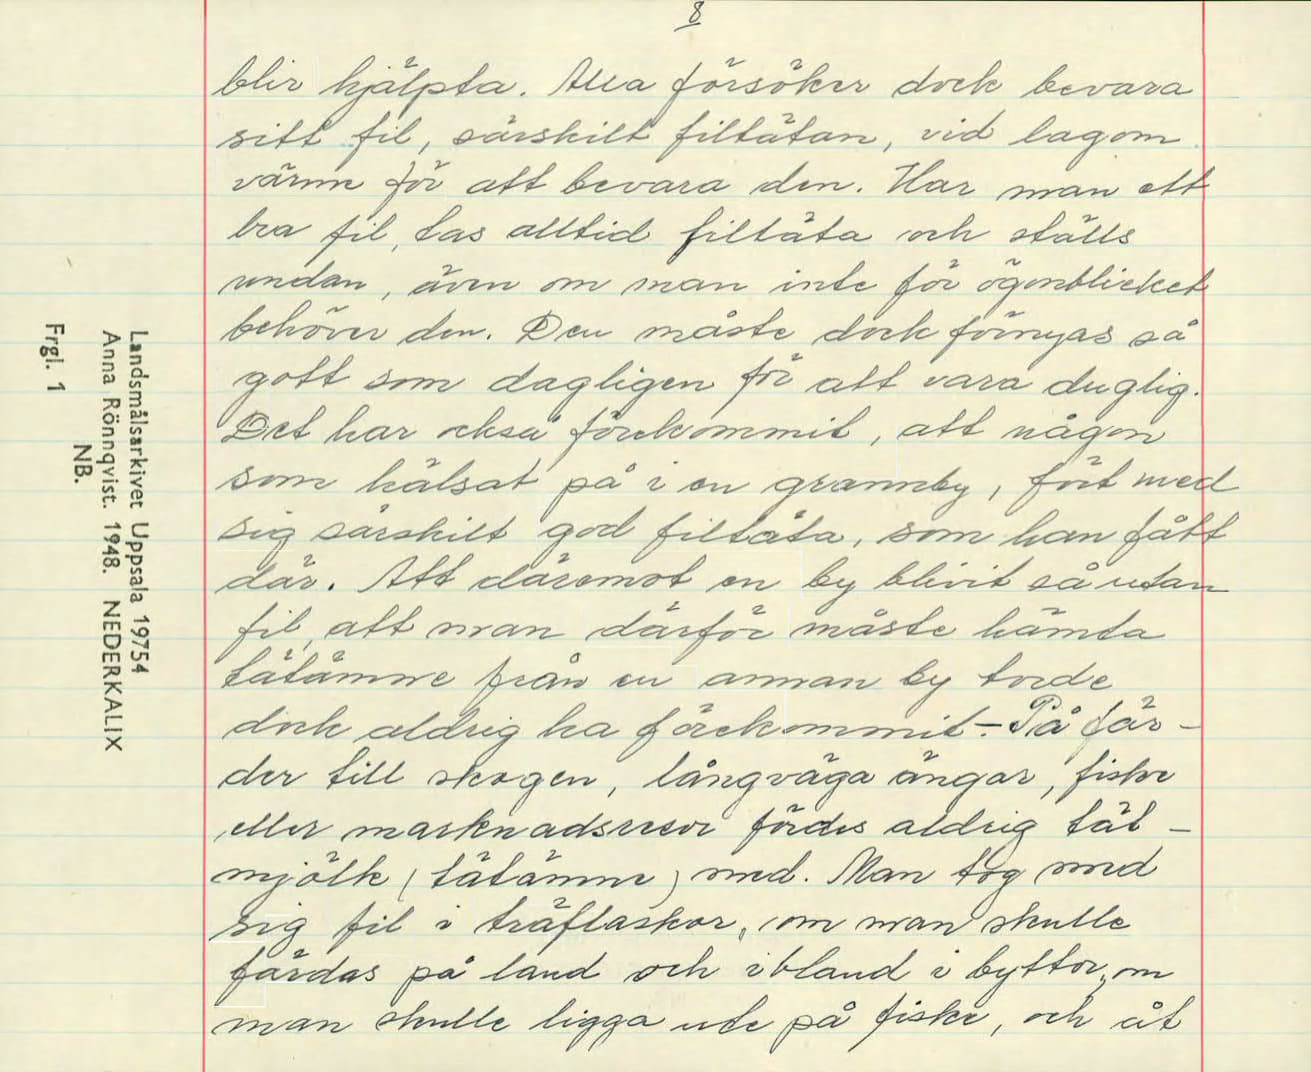 8
blir hjälpta. Alla försöker dock bevara
sitt fil, särskilt filtätan, vid lagom
värme för att bevara den. Har man ett
bra fil, tas alltid filtäta och ställs
undan, även om man inte för ögonblicket
behöver den. Den måste dock förnyas så
gott som dagligen för att vara duglig.
Det har också förekommit, att någon
som hälsat på i en grannby, fört med
sig särskilt god filtäta, som han fått
där. Att däremot en by blivit så utan
fil, att man därför måste hämta
tätämne från en annan by torde
dock aldrig ha förekommit. – På fär-
der till skogen, långväga ängar, fiske
eller marknadsresor fördes aldrig tät-
mjölk (tätämne) med. Man tog med
sig fil i träflaskor, om man skulle
färdas på land och ibland i byttor, om
man skulle ligga ute på fiske, och åt
Landsmålsarkivet Uppsala 19754
Anna Rönnqvist. 1948. NEDERKALIX
NB.
Frgl. 1